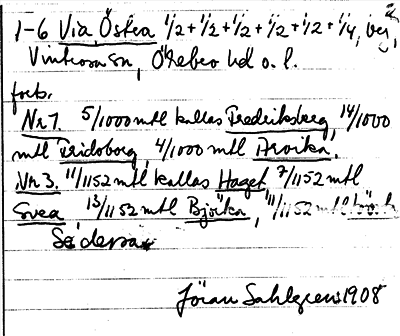 1-6 Via, Östra 1/2+1/2+1/2+1/2+1/2+1/4,
Vintrosa sn, Örebro hd o. l.
forts.
Nr 1. 5/1000 mtl kallas Fredriksberg, 14/1000
mtl Fridoborg, 4/1000 mtl Arvika.
Nr 3. 11/1152 mtl kallas Haget 7/1152 mtl
Svea 13/1152 mtl Björka, 11/1152 mtl
Södersa
Jöran Sahlgren 1908